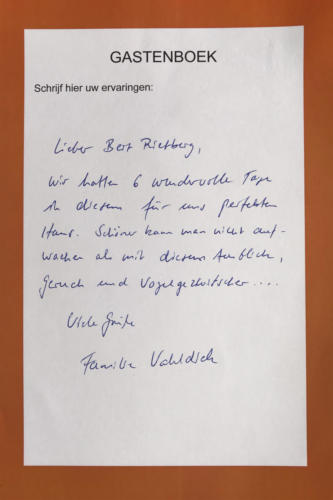 GASTENBOEK
Schrijf hier uw ervaringen:
Lieber Bert Rietberg,
wir hatten 6 wundervolle Tage
in diesem für uns perfekten
Haus. Schöner kann man nicht auf-
wachen als mit diesem Anblick,
Geruch und Vogelgezwitscher....
Viele Grüße
Familie